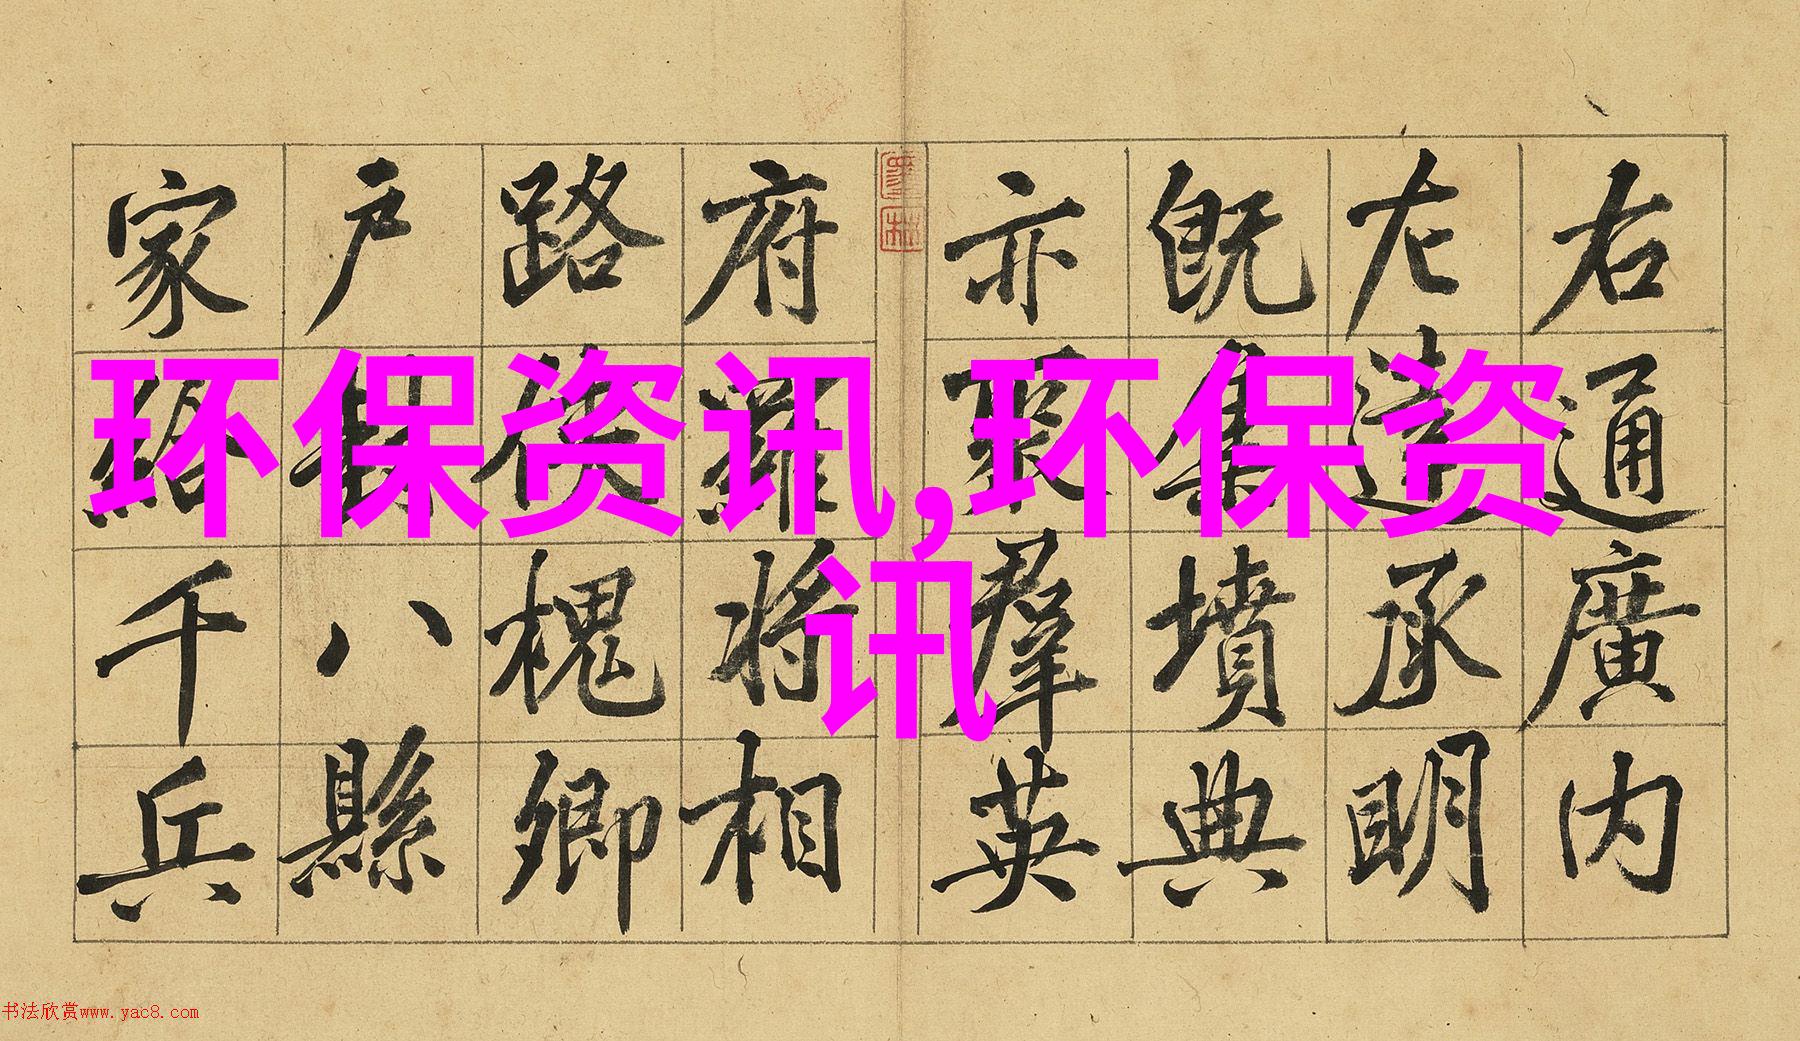 右通廣内
左達承明
既集墳典
亦聚羣英
府羅将相
路俠槐卿
户封八縣
家給千兵
环保资讯,环保资
讯
书法欣赏www.yac8.com